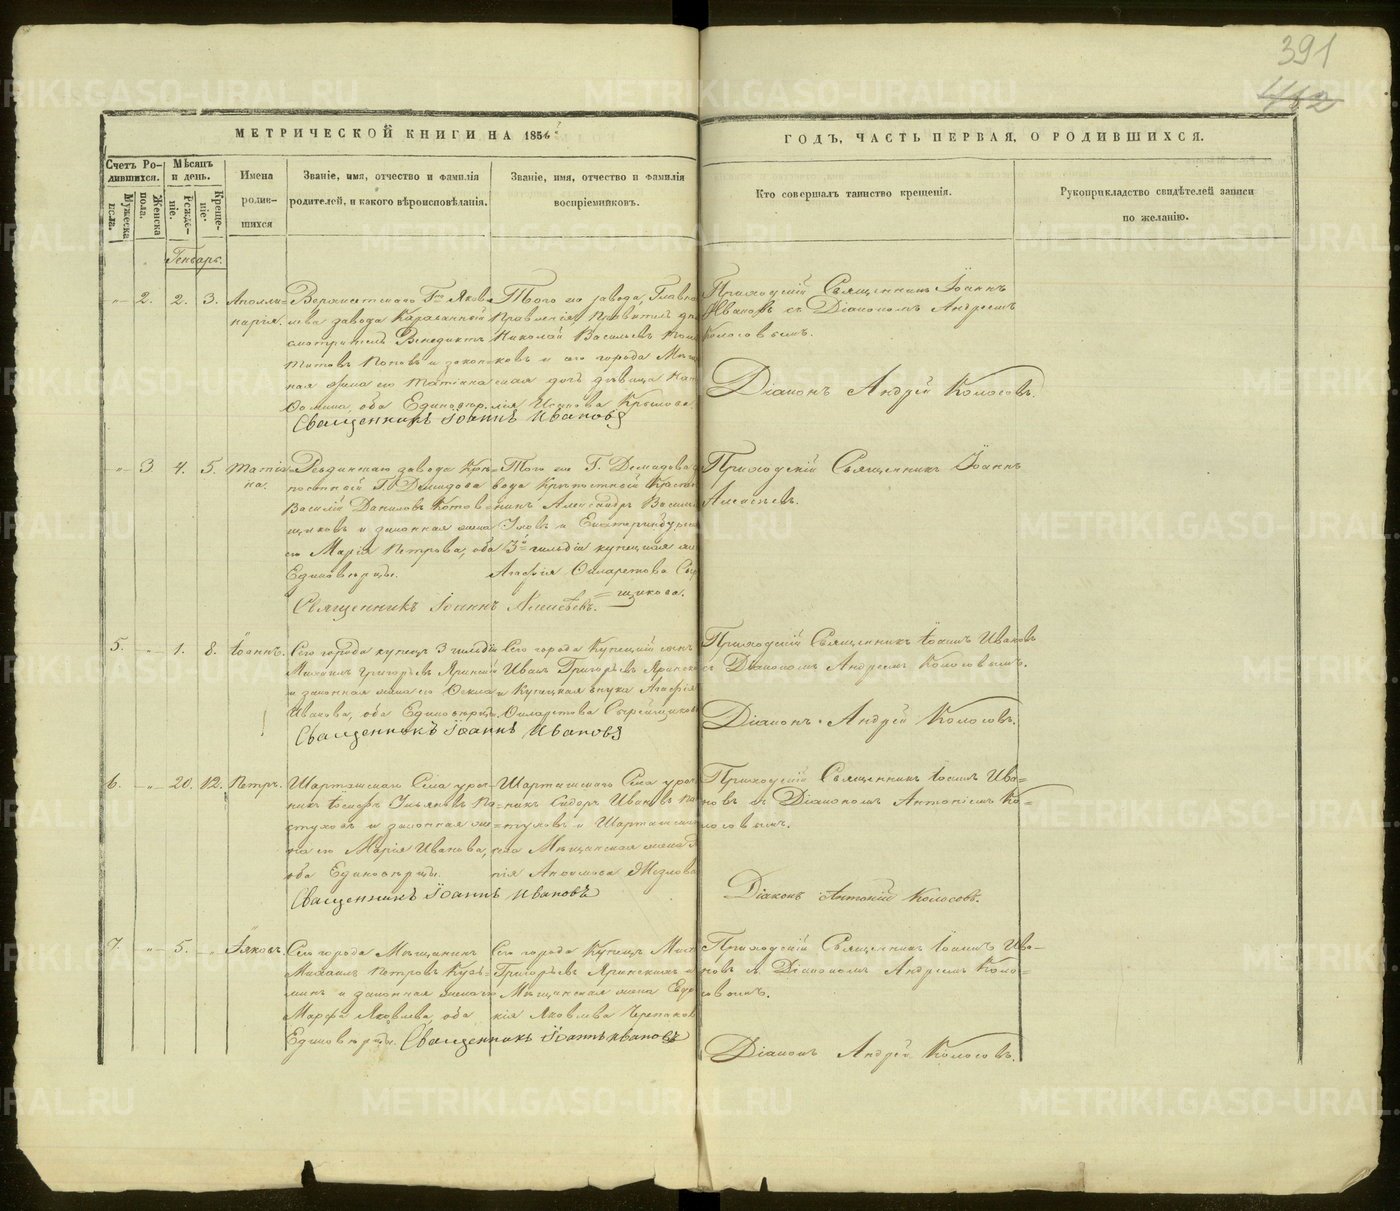 391
412
МЕТРИЧЕСКОЙ КНИГИ НА 1856
ГОДЪ, ЧАСТЬ ПЕРВАЯ, О РОДИВШИХСЯ.
Счетъ Ро-
дившихся.
Мѣсяцъ
и день.
Имена
родив-
шихся
Званіе, имя, отчество и фамилія
родителей, и какого вѣроисповѣданія.
Званіе, имя, отчество и фамилія
воспріемниковъ.
Кто совершалъ таинство крещенія.
Рукоприкладство свидѣтелей записи
по желанію.
Мужеска
пола.
Женска
пола.
Рожде-
ніе.
Креще-
ніе.
Генварь.
2. 2. 3. Аполли-
нарія.
Верхисетскаго Гг. Яков-
лева завода Караванный
смотритель Венедиктъ
Титовъ Поповъ и закон-
ная жена его Татіана
Ѳомина, оба Единовѣр.
Священникъ Іоаннъ Ивановъ
Того же завода, Главна
Правленія
Николай Васильевъ
ковъ и сего города Мѣщ
ская дочь дѣвица
Крылова.
Приходскій Священникъ Іоаннъ
Ивановъ съ Діакономъ Андреемъ
Колосовымъ.
Діаконъ Андрей Колосовъ.
3 4. 5. Татіа-
на.
Ревдинскаго завода Крѣ-
постной Г. Демидова
Василій Даниловъ Котов-
щиковъ и законная жена
его Марія Петрова, оба
Единовѣрцы.
Священникъ Іоаннъ Алексѣевъ.
Того же Г. Демидова
вода Крѣпостный
Александръ Василь
и Екатеринбург
3й гильдіи купецкая
Агафія Филаретова
щикова.
Приходскій Священникъ Іоаннъ
Алексѣевъ.
5. 1. 8. Іоаннъ.
Сего города купецъ 3 гильдіи
Михаилъ Григорьевъ Яринскій
и законная жена его Ѳекла
Иванова, оба Единовѣрцы.
Священникъ Іоаннъ Ивановъ
Сего города Купецкій сынъ
Иванъ Григорьевъ Яринскій
и Купецкая внука Агафія
Филаретова Сырейщикова
Приходскій Священникъ Іоаннъ Ивановъ
съ Діакономъ Андреемъ Колосовымъ.
Діаконъ Андрей Колосовъ.
6. 20. 12. Петръ.
Шарташскаго Села
Іосифъ Ильинъ Па-
стуховъ и законная же-
на его Марія Иванова,
оба Единовѣрцы.
Священникъ Іоаннъ Ивановъ
Шарташскаго Села
Сидоръ Ивановъ Па-
стуховъ и Шарташ
ская Мѣщанская жена
Козлова
Приходскій Священникъ Іоаннъ Ива-
новъ съ Діакономъ Антоніемъ Ко-
лосовымъ.
Діаконъ Антоній Колосовъ.
7. 5. Іяковъ.
Сего города Мѣщанинъ
Михаилъ Петровъ Кузь-
минъ и законная жена его
Марфа Яковлева, оба
Единовѣрцы. Священникъ Іоаннъ Ивановъ
Сего города Купецъ Мих
Григорьевъ Яринскихъ и
Мѣщанская жена Евдо
кія Яковлева Черепанов
Приходскій Священникъ Іоаннъ Ива-
новъ съ Діакономъ Андреемъ Коло-
совымъ.
Діаконъ Андрей Колосовъ.
METRIKI.GASO-URAL.RU